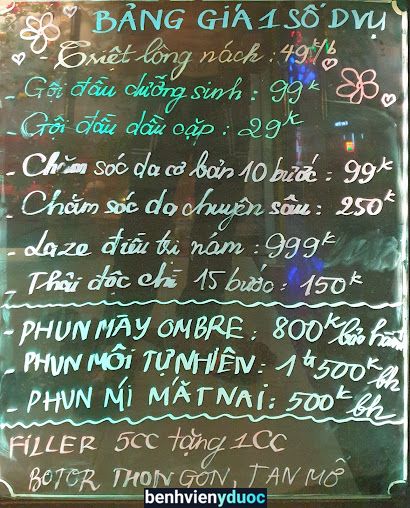 BẢNG GIÁ 1 SỐ DVỤ
- Triệt lông nách : 49k/b
- Gội đầu dưỡng sinh : 99k
- Gội đầu dầu cặp : 29k
- Chăm sóc da cơ bản 10 bước : 99k
- Chăm sóc da chuyên sâu : 250k
- Laze điều trị nám : 999k
- Thải độc chì 15 bước : 150k
- PHUN MÀY OMBRE : 800k bảo hành
- PHUN MÔI TỰ NHIÊN : 1tr500k bh
- PHUN MÍ MẮT NAI : 500k bh
FILLER 5CC tặng 1CC
BOTOR THON GỌN, TAN MỠ
benhvienyduoc